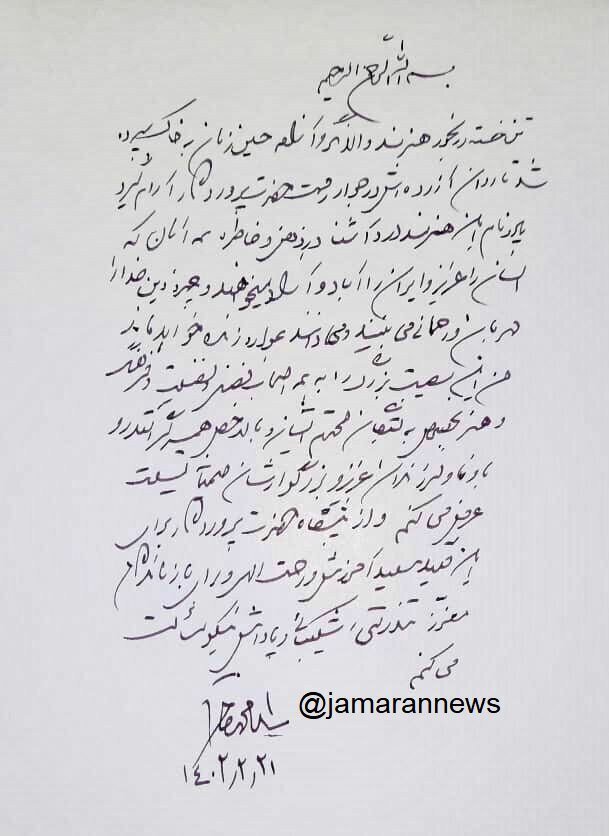 بسم الله الرحمن الرحیم
تن خسته و رنجور هنرمند والاگهر و آزاده حسین زمان به خاک سپرده
شد تا روان آزرده اش در جوار رحمت حضرت پروردگار آرام گیرد
یاد و نام این هنرمند درد آشنا در ذهن و خاطره همه آنان که
انسان را عزیز و ایران را آباد و آزاد میخواهند و چهره دین خدا را
مهربان و رحمانی می بینند و می دانند همواره زنده خواهد ماند
من این مصیبت بزرگ را به همه اصحاب فضل و فضیلت و فرهنگ
و هنر بخصوص به بستگان محترم ایشان و بالاخص همسر گرانقدر و
باوفا و فرزندان عزیز و بزرگوارشان صمیمانه تسلیت
عرض می کنم و از پیشگاه حضرت پروردگار برای
این فقید سعید آمرزش و رحمت الهی و برای بازماندگان
معزز تندرستی، شکیبائی و پاداش نیکو مسألت
می کنم
سید محمد خاتمی
۱۴۰۲/۲/۲۱
@jamarannews